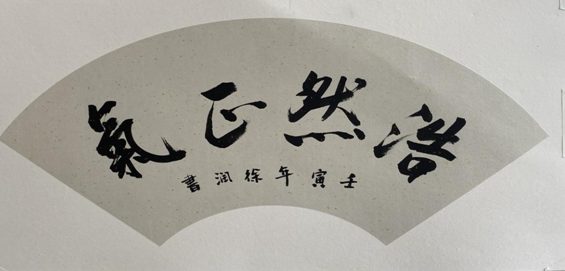 浩然正氣
壬寅年徐润書